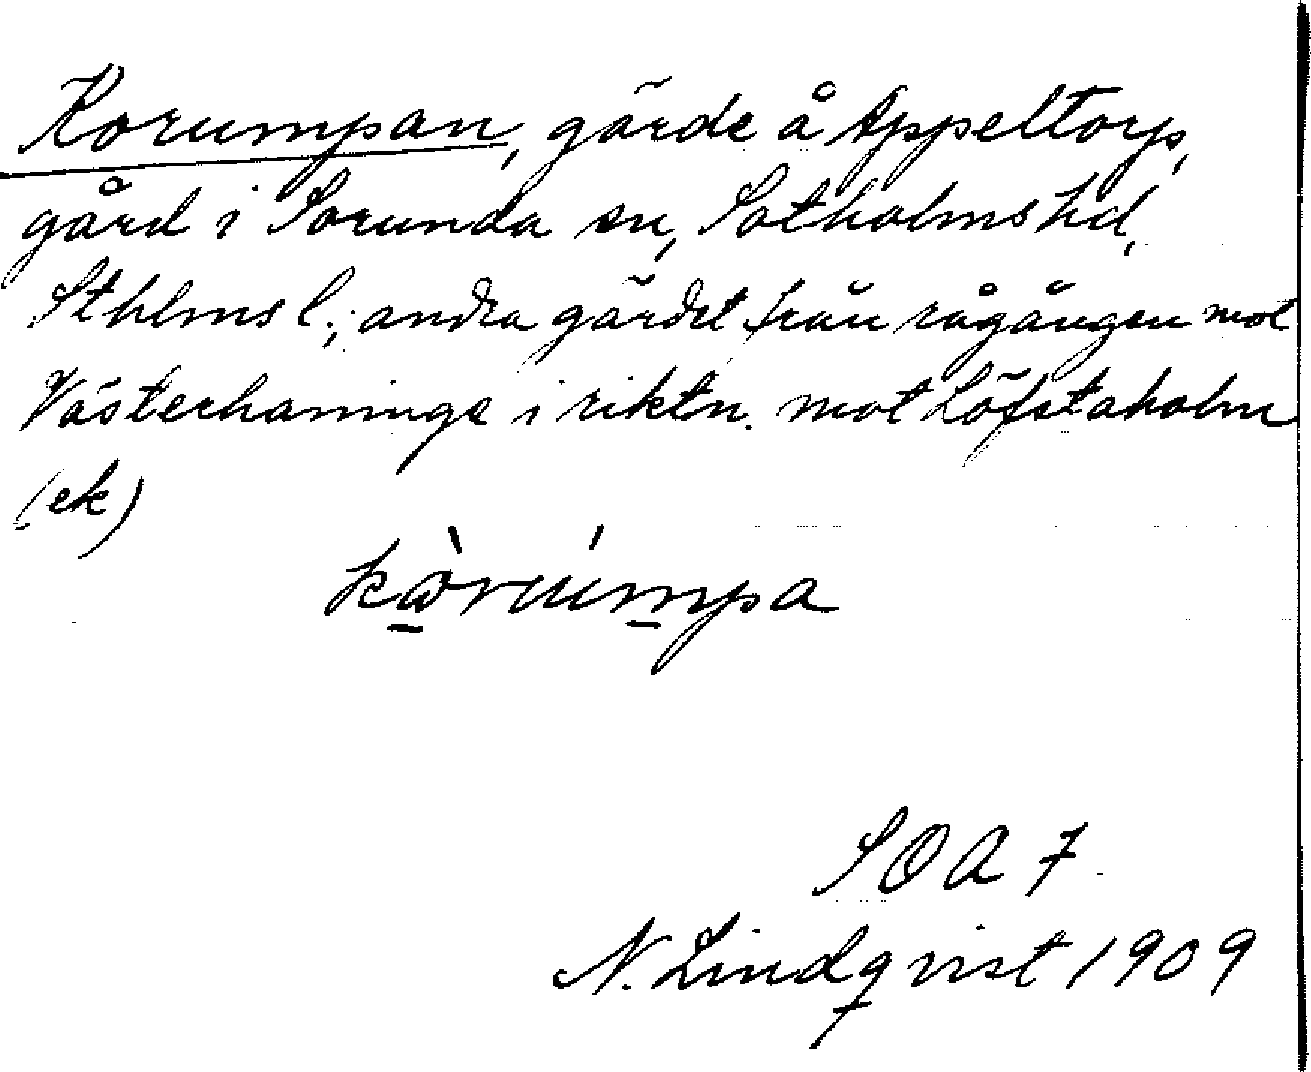 Korumpan, gärde å Appeltorp,
gård i Sorunda sn, Sotholms hd,
Sthlms l.; andra gärdet från rågången mot
Västerhaninge i riktn. mot Löfstaholm
(ek)
kωòrúmpa
SOA 7
N. Lindqvist 1909